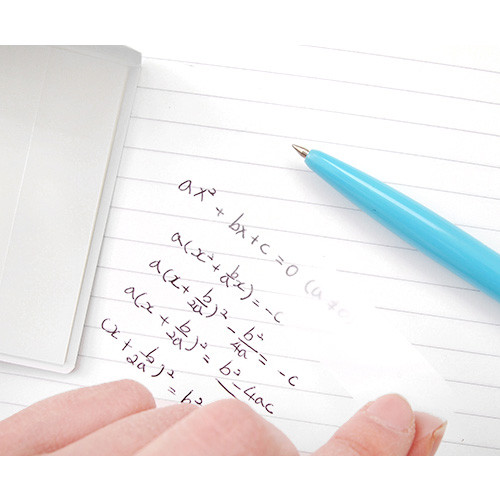 ax² + bx + c = 0 (a ≠
a(x² + b/a x) = -c
a(x + b/2a)² - b²/4a = -c
a(x + b/2a)² = b² - 4ac
(x + b/2a)² = b²